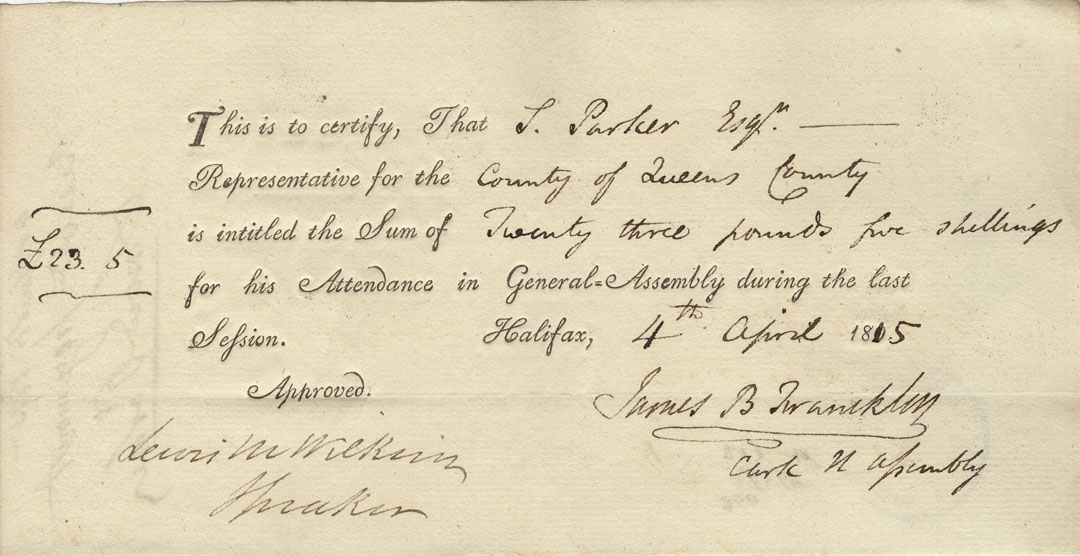 This is to certify, That S. Parker Esqr.
Representative for the County of Queens County
is intitled the Sum of Twenty three pounds five shillings
£23. 5
for his Attendance in General=Assembly during the last
Session. Halifax, 4th April 1815
Approved.
James B Francklin
Lewis M Wilkins
Clark H Assembly
Speaker